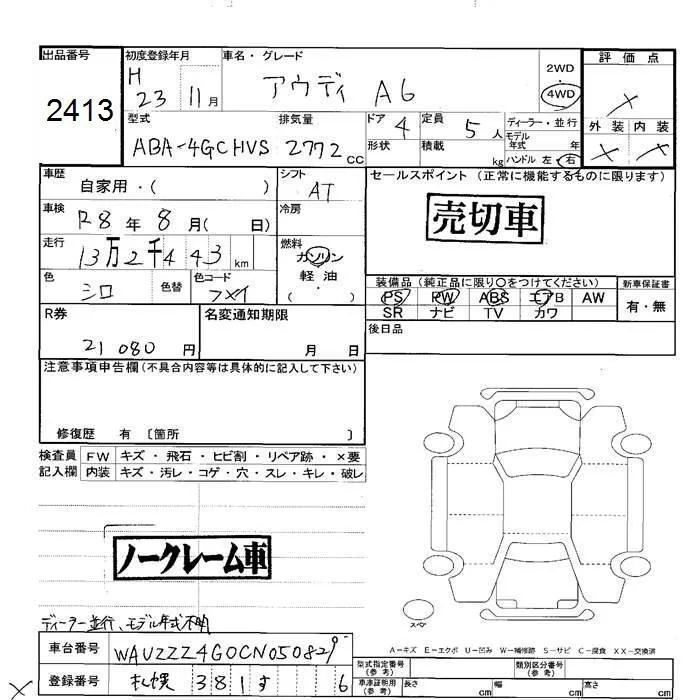 出品番号
2413
初度登録年月
H 23 11月
車名・グレード
アウディ A6
2WD
・
4WD
評価点
×
外装 内装
× ×
型式
ABA-4GCHVS
排気量
2772 CC
ドア 4
形状
定員 5人
積載 kg
ディーラー・並行
モデル年式 年
ハンドル 左・右
車歴
自家用・( )
シフト
AT
車検
R8年8月( 日)
冷房
走行
13万2千443 km
燃料
ガソリン
軽油
( ・ )
色
シロ
色替
色コード
フメイ
セールスポイント (正常に機能するものに限ります)
売切車
装備品 (純正品に限り○をつけてください)
PS PW ABS エアB AW
SR ナビ TV カワ
新車保証書
有・無
後日品
R券
21080円
名変通知期限
月 日
注意事項申告欄(不具合内容等は具体的に記入して下さい)
修復歴 有 〔箇所 〕
検査員記入欄
FW キズ・飛石・ヒビ割・リペア跡・×要
内装 キズ・汚レ・コゲ・穴・スレ・キレ・破レ
ノークレーム車
スペア
ディーラー並行、モデル年式不明
A－キズ E－エクボ U－凹み W－補修跡 S－サビ C－腐食 XX－交換済
車台番号
WAUZZZ4G0CN050829
登録番号
札幌 381 す 6
×
型式指定番号
(参考)
類別区分番号
(参考)
車庫証明用
(参考)
長さ cm
幅 cm
高さ cm